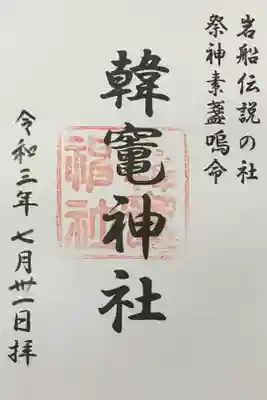 岩船伝説の社
祭神素盞嗚命
韓竈神社
令和三年七月卅一日拝